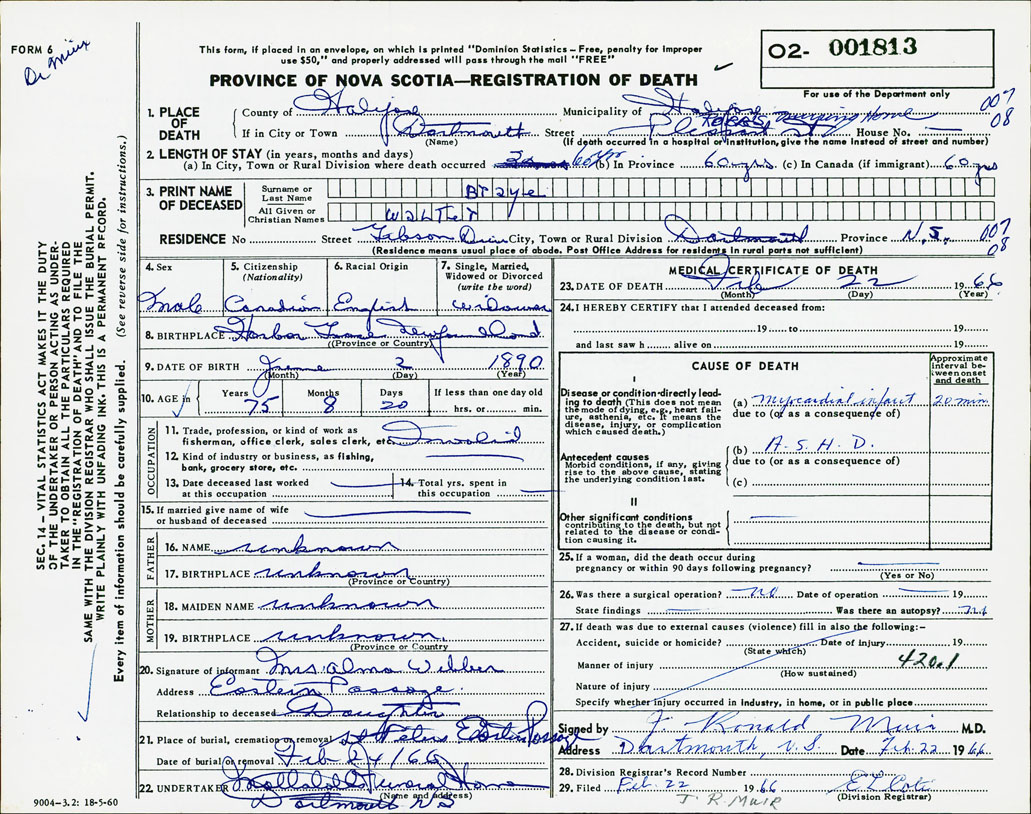 FORM 6
Dr Muir
This form, if placed in an envelope, on which is printed "Dominion Statistics – Free, penalty for improper
use $50," and properly addressed will pass through the mail "FREE"
PROVINCE OF NOVA SCOTIA—REGISTRATION OF DEATH
O2- 001813
For use of the Department only
1. PLACE OF DEATH
County of Halifax Municipality of Halifax 007
Nursing Home 08
If in City or Town Dartmouth Street Pleasant St House No. —
(Name) (If death occurred in a hospital or institution, give the name instead of street and number)
2. LENGTH OF STAY (in years, months and days)
(a) In City, Town or Rural Division where death occurred 60 yrs (b) In Province 60 yrs (c) In Canada (if immigrant) 60 yrs
3. PRINT NAME OF DECEASED
Surname or Last Name Braye
All Given or Christian Names Walter
RESIDENCE No Street Gibson City, Town or Rural Division Dartmouth Province N.S. 007
08
(Residence means usual place of abode. Post Office Address for residents in rural parts not sufficient)
4. Sex Male
5. Citizenship (Nationality) Canadian
6. Racial Origin English
7. Single, Married, Widowed or Divorced (write the word) widower
8. BIRTHPLACE Harbor Grace Newfoundland
(Province or Country)
9. DATE OF BIRTH June 2 1890
(Month) (Day) (Year)
10. AGE in Years 75 Months 8 Days 20 If less than one day old
hrs. or min.
OCCUPATION
11. Trade, profession, or kind of work as
fisherman, office clerk, sales clerk, etc. Invalid
12. Kind of industry or business, as fishing,
bank, grocery store, etc. —
13. Date deceased last worked
at this occupation —
14. Total yrs. spent in
this occupation —
15. If married give name of wife
or husband of deceased —
FATHER
16. NAME unknown
17. BIRTHPLACE unknown
(Province or Country)
MOTHER
18. MAIDEN NAME unknown
19. BIRTHPLACE unknown
(Province or Country)
20. Signature of informant Mrs. Alma
Address Eastern Passage
Relationship to deceased Daughter
21. Place of burial, cremation or removal St Peters Eastern Passage
Date of burial or removal Feb 24/66
22. UNDERTAKER Funeral Home
(Name and address)
Dartmouth NS
9004-3.2: 18-5-60
MEDICAL CERTIFICATE OF DEATH
23. DATE OF DEATH Feb 22 1966
(Month) (Day) (Year)
24. I HEREBY CERTIFY that I attended deceased from:
19 to 19
and last saw h alive on 19
CAUSE OF DEATH
Approximate interval between onset and death
I
Disease or condition directly leading to death (This does not mean the mode of dying, e.g., heart failure, asthenia, etc. It means the disease, injury, or complication which caused death.)
(a) Myocardial infarct 20 min
due to (or as a consequence of)
Antecedent causes
Morbid conditions, if any, giving rise to the above cause, stating the underlying condition last.
(b) A.S.H.D.
due to (or as a consequence of)
(c)
II
Other significant conditions
contributing to the death, but not related to the disease or condition causing it.
—
25. If a woman, did the death occur during
pregnancy or within 90 days following pregnancy? —
(Yes or No)
26. Was there a surgical operation? no Date of operation — 19
State findings — Was there an autopsy? no
27. If death was due to external causes (violence) fill in also the following:–
Accident, suicide or homicide? Date of injury 19
(State which)
Manner of injury 420.1
(How sustained)
Nature of injury
Specify whether injury occurred in industry, in home, or in public place
Signed by J. Ronald Muir M.D.
Address Dartmouth, N.S. Date Feb. 22 1966
28. Division Registrar's Record Number
29. Filed Feb. 22 1966
(Division Registrar)
J. R. MUIR
SEC. 14 – VITAL STATISTICS ACT MAKES IT THE DUTY
OF THE UNDERTAKER OR PERSON ACTING AS UNDER-
TAKER TO OBTAIN ALL THE PARTICULARS REQUIRED
IN THE "REGISTRATION OF DEATH" AND TO FILE THE
SAME WITH THE DIVISION REGISTRAR WHO SHALL ISSUE THE BURIAL PERMIT.
WRITE PLAINLY WITH UNFADING INK. THIS IS A PERMANENT RECORD.
Every item of information should be carefully supplied. (See reverse side for instructions.)